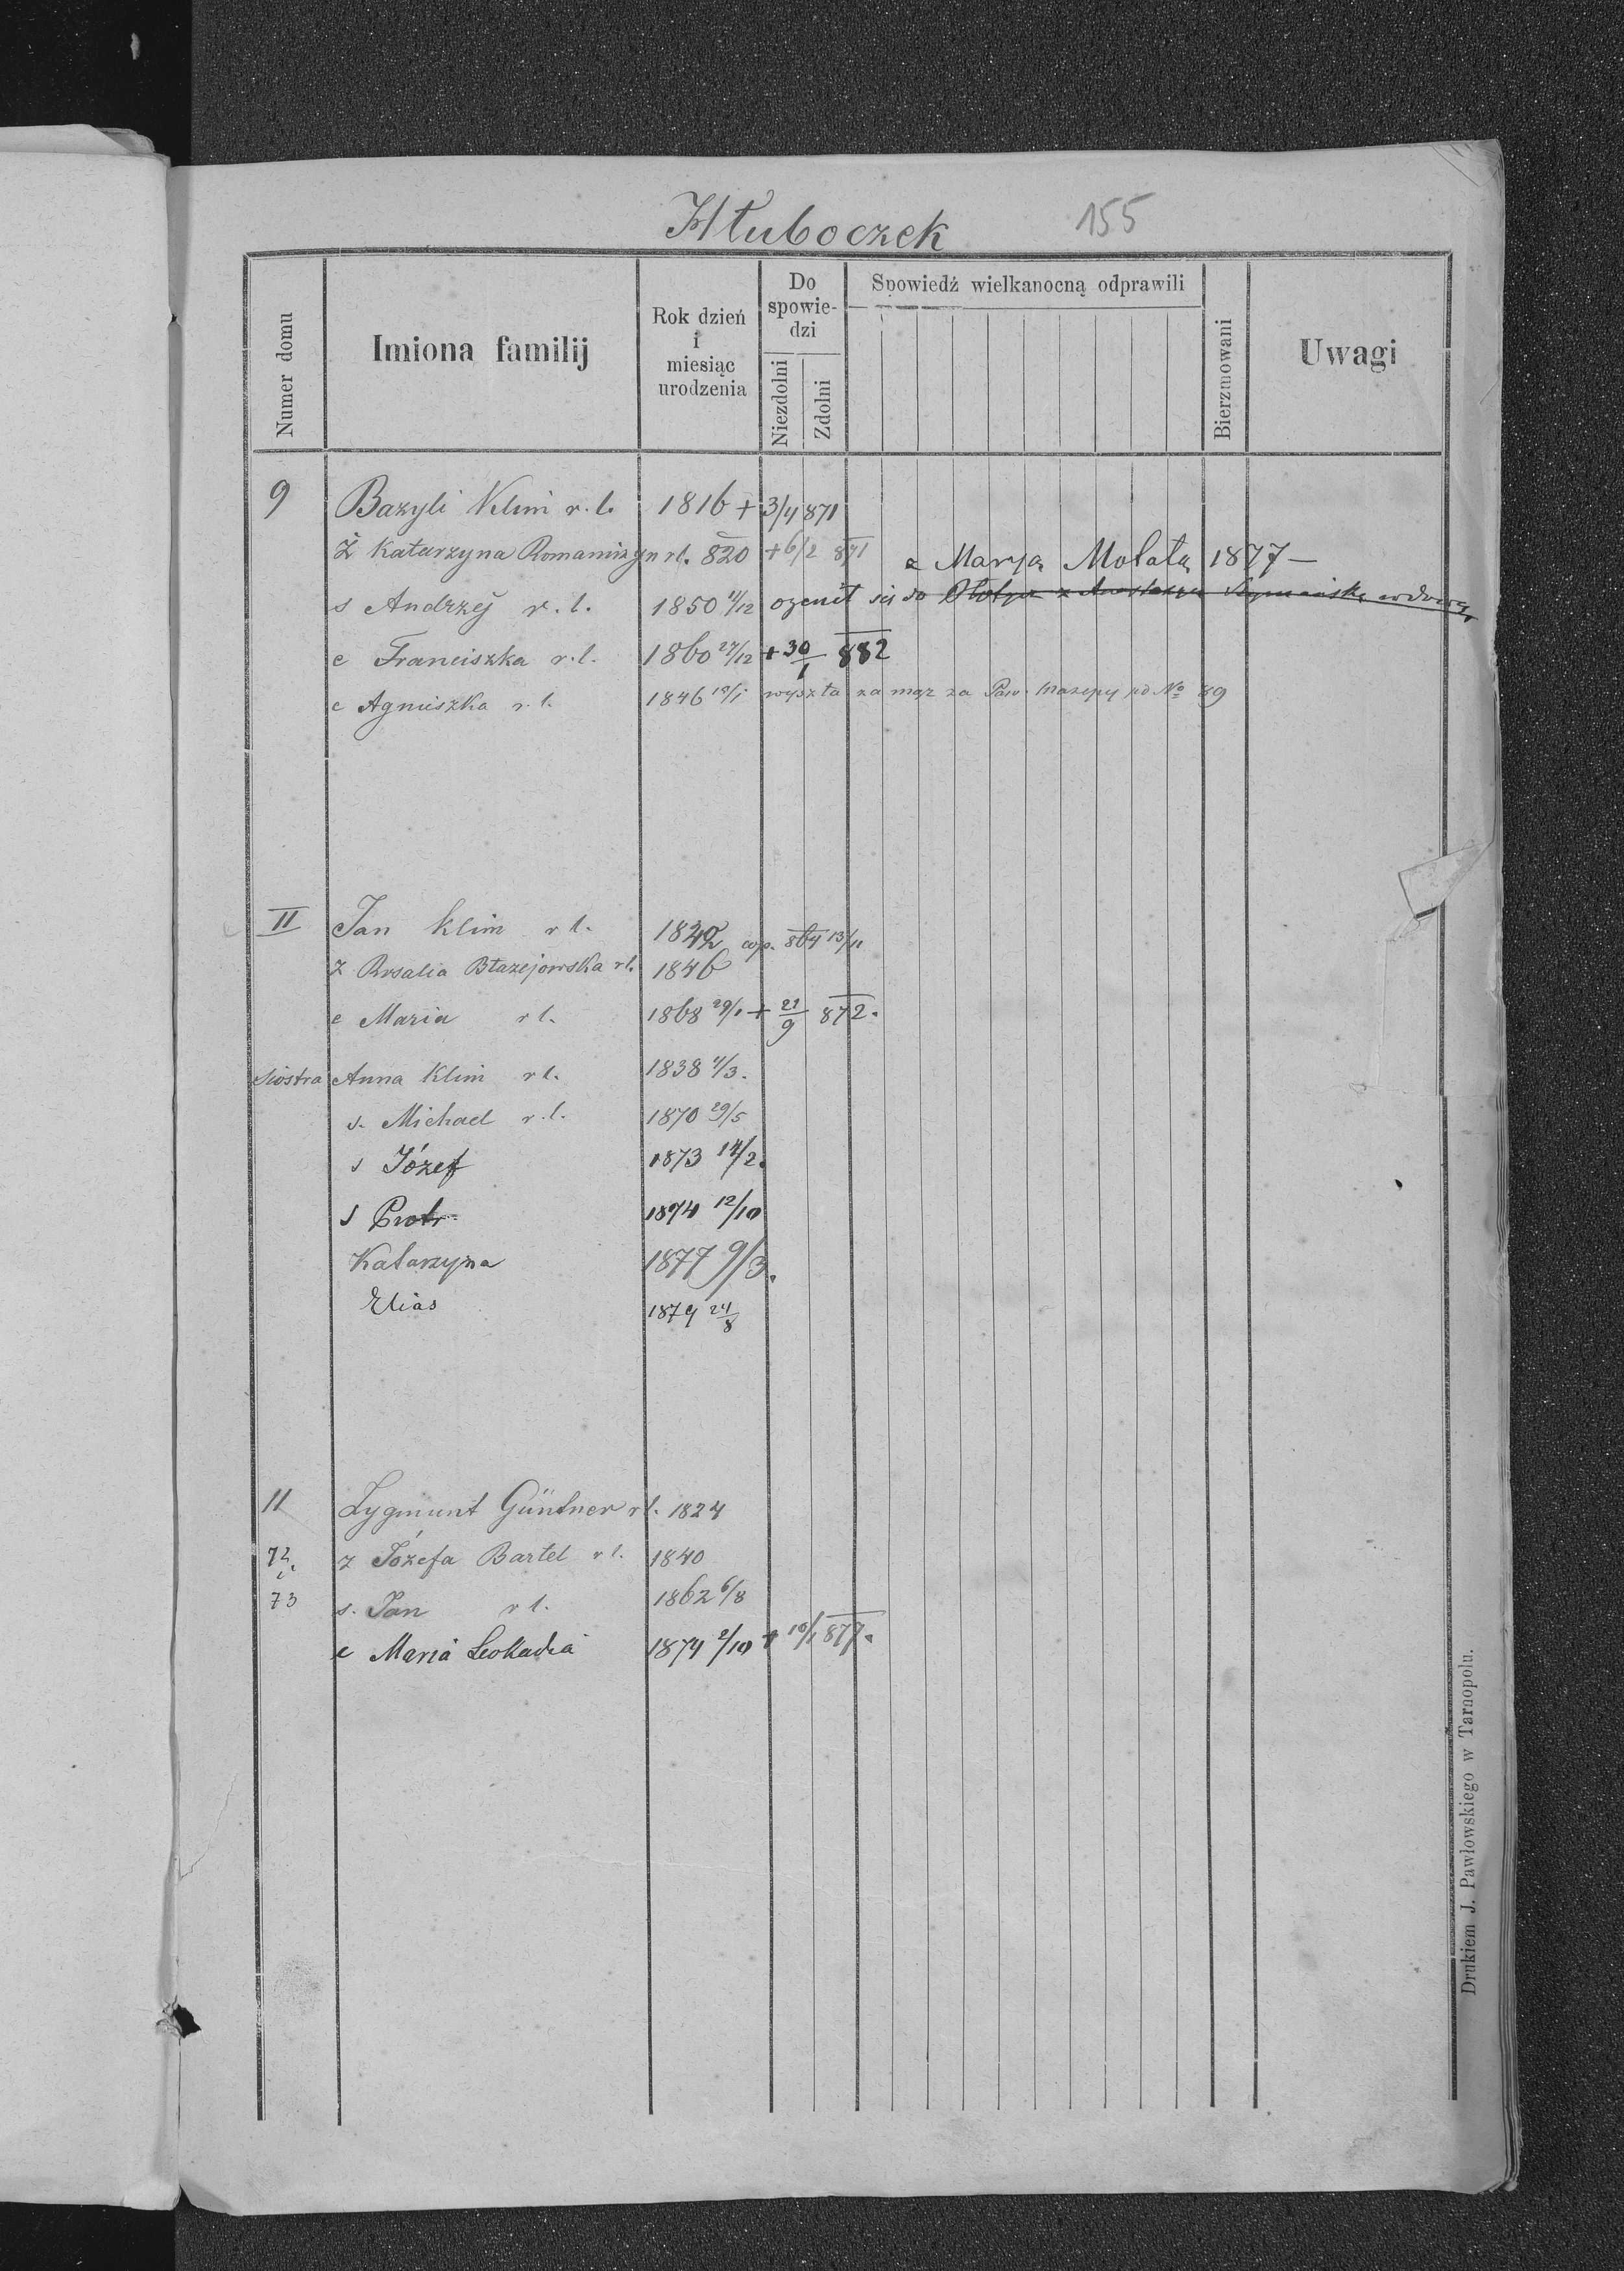 Hłuboczek 155
Numer domu
Imiona familij
Rok dzień
i
miesiąc
urodzenia
Do
spowie-
dzi
Niezdolni
Zdolni
Spowiedź wielkanocną odprawili
Bierzmowani
Uwagi
9 Bazyli Klim r. l. 1816 + 3/4 871
Ż Katarzyna r l. 820 + 6/2 871
z Maryą 1877 —
s Andrzej r. l. 1850 11/12 ożenił się do
c Franciszka r. l. 1860 27/12 + 30/1 882
c Agniszka r. l. 1846 18/1 wyszła za mąż za Paw. Mazepy pd No 89
II Jan Klim r l. 1842 cop. 864 13/11
Ż Rosalia Błażejowska r l. 1846
c Maria r l. 1868 29/1 + 21/9 872.
Siostra Anna Klim r l. 1838 4/3.
s. Michael r. l. 1870 29/5
s Józef 1873 14/2.
s Piotr 1874 12/10
Katarzyna 1877 9/3.
Elias 1879 24/8
11 Zygmunt Güntner r l. 1824
72 i. ż Józefa Bartel r l. 1840
73 s. Jan r l. 1862 6/8
c Maria Leokadia 1874 2/10 + 10/1 877.
Drukiem J. Pawłowskiego w Tarnopolu.